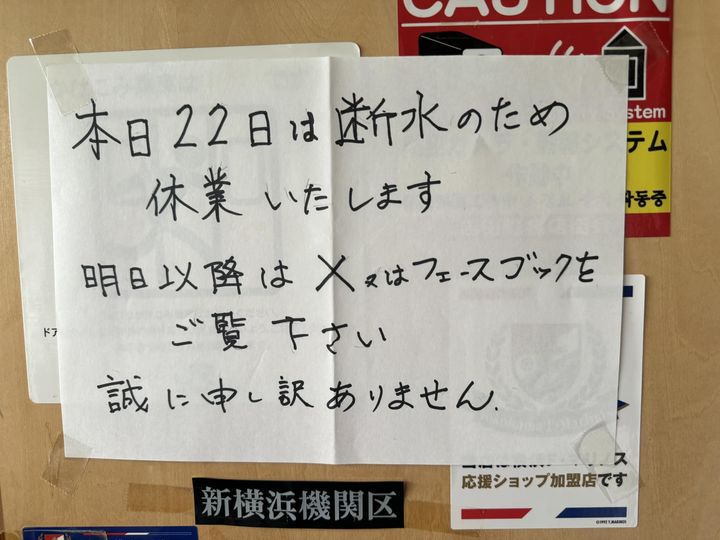 CAUTION
本日22日は断水のため
休業いたします
明日以降は X 又はフェースブックを
ご覧下さい
誠に申し訳ありません.
stem
ステム
작동중
ドア
応援ショップ加盟店です
新横浜機関区